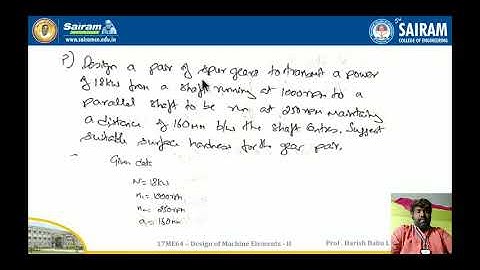 Sairam
www.sairamce.edu.in
Sri
SAIRAM
COLLEGE OF ENGINEERING
P) Design a pair of spur gears to transmit a power
of 18kw from a shaft running at 1000rpm to a
parallel shaft to be run at 250rpm maintaining
a distance of 160mm b/w the shaft centres. Suggest
suitable surface hardness for the gear pair.
Given data
N = 18kw
n₁ = 1000rpm
n₂ = 250rpm
a = 160mm
17ME64 – Design of Machine Elements - II
Prof. Harish Babu L